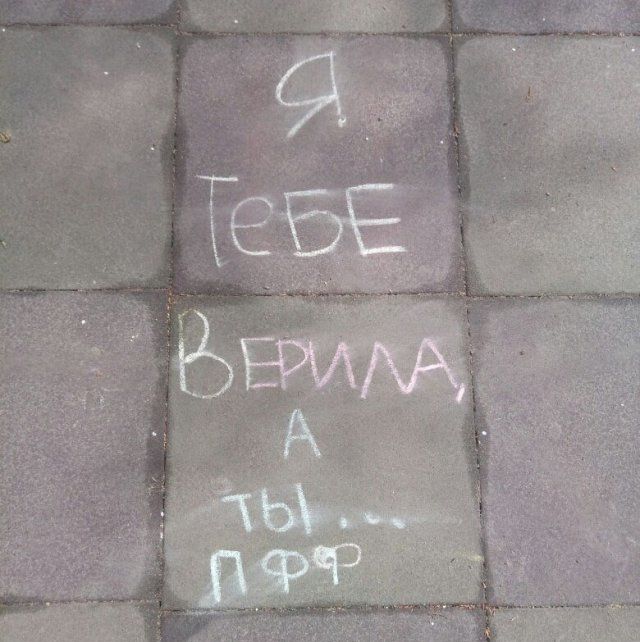 Я
ТеБЕ
ВЕРИЛА,
А
ТЫ...
ПФФ